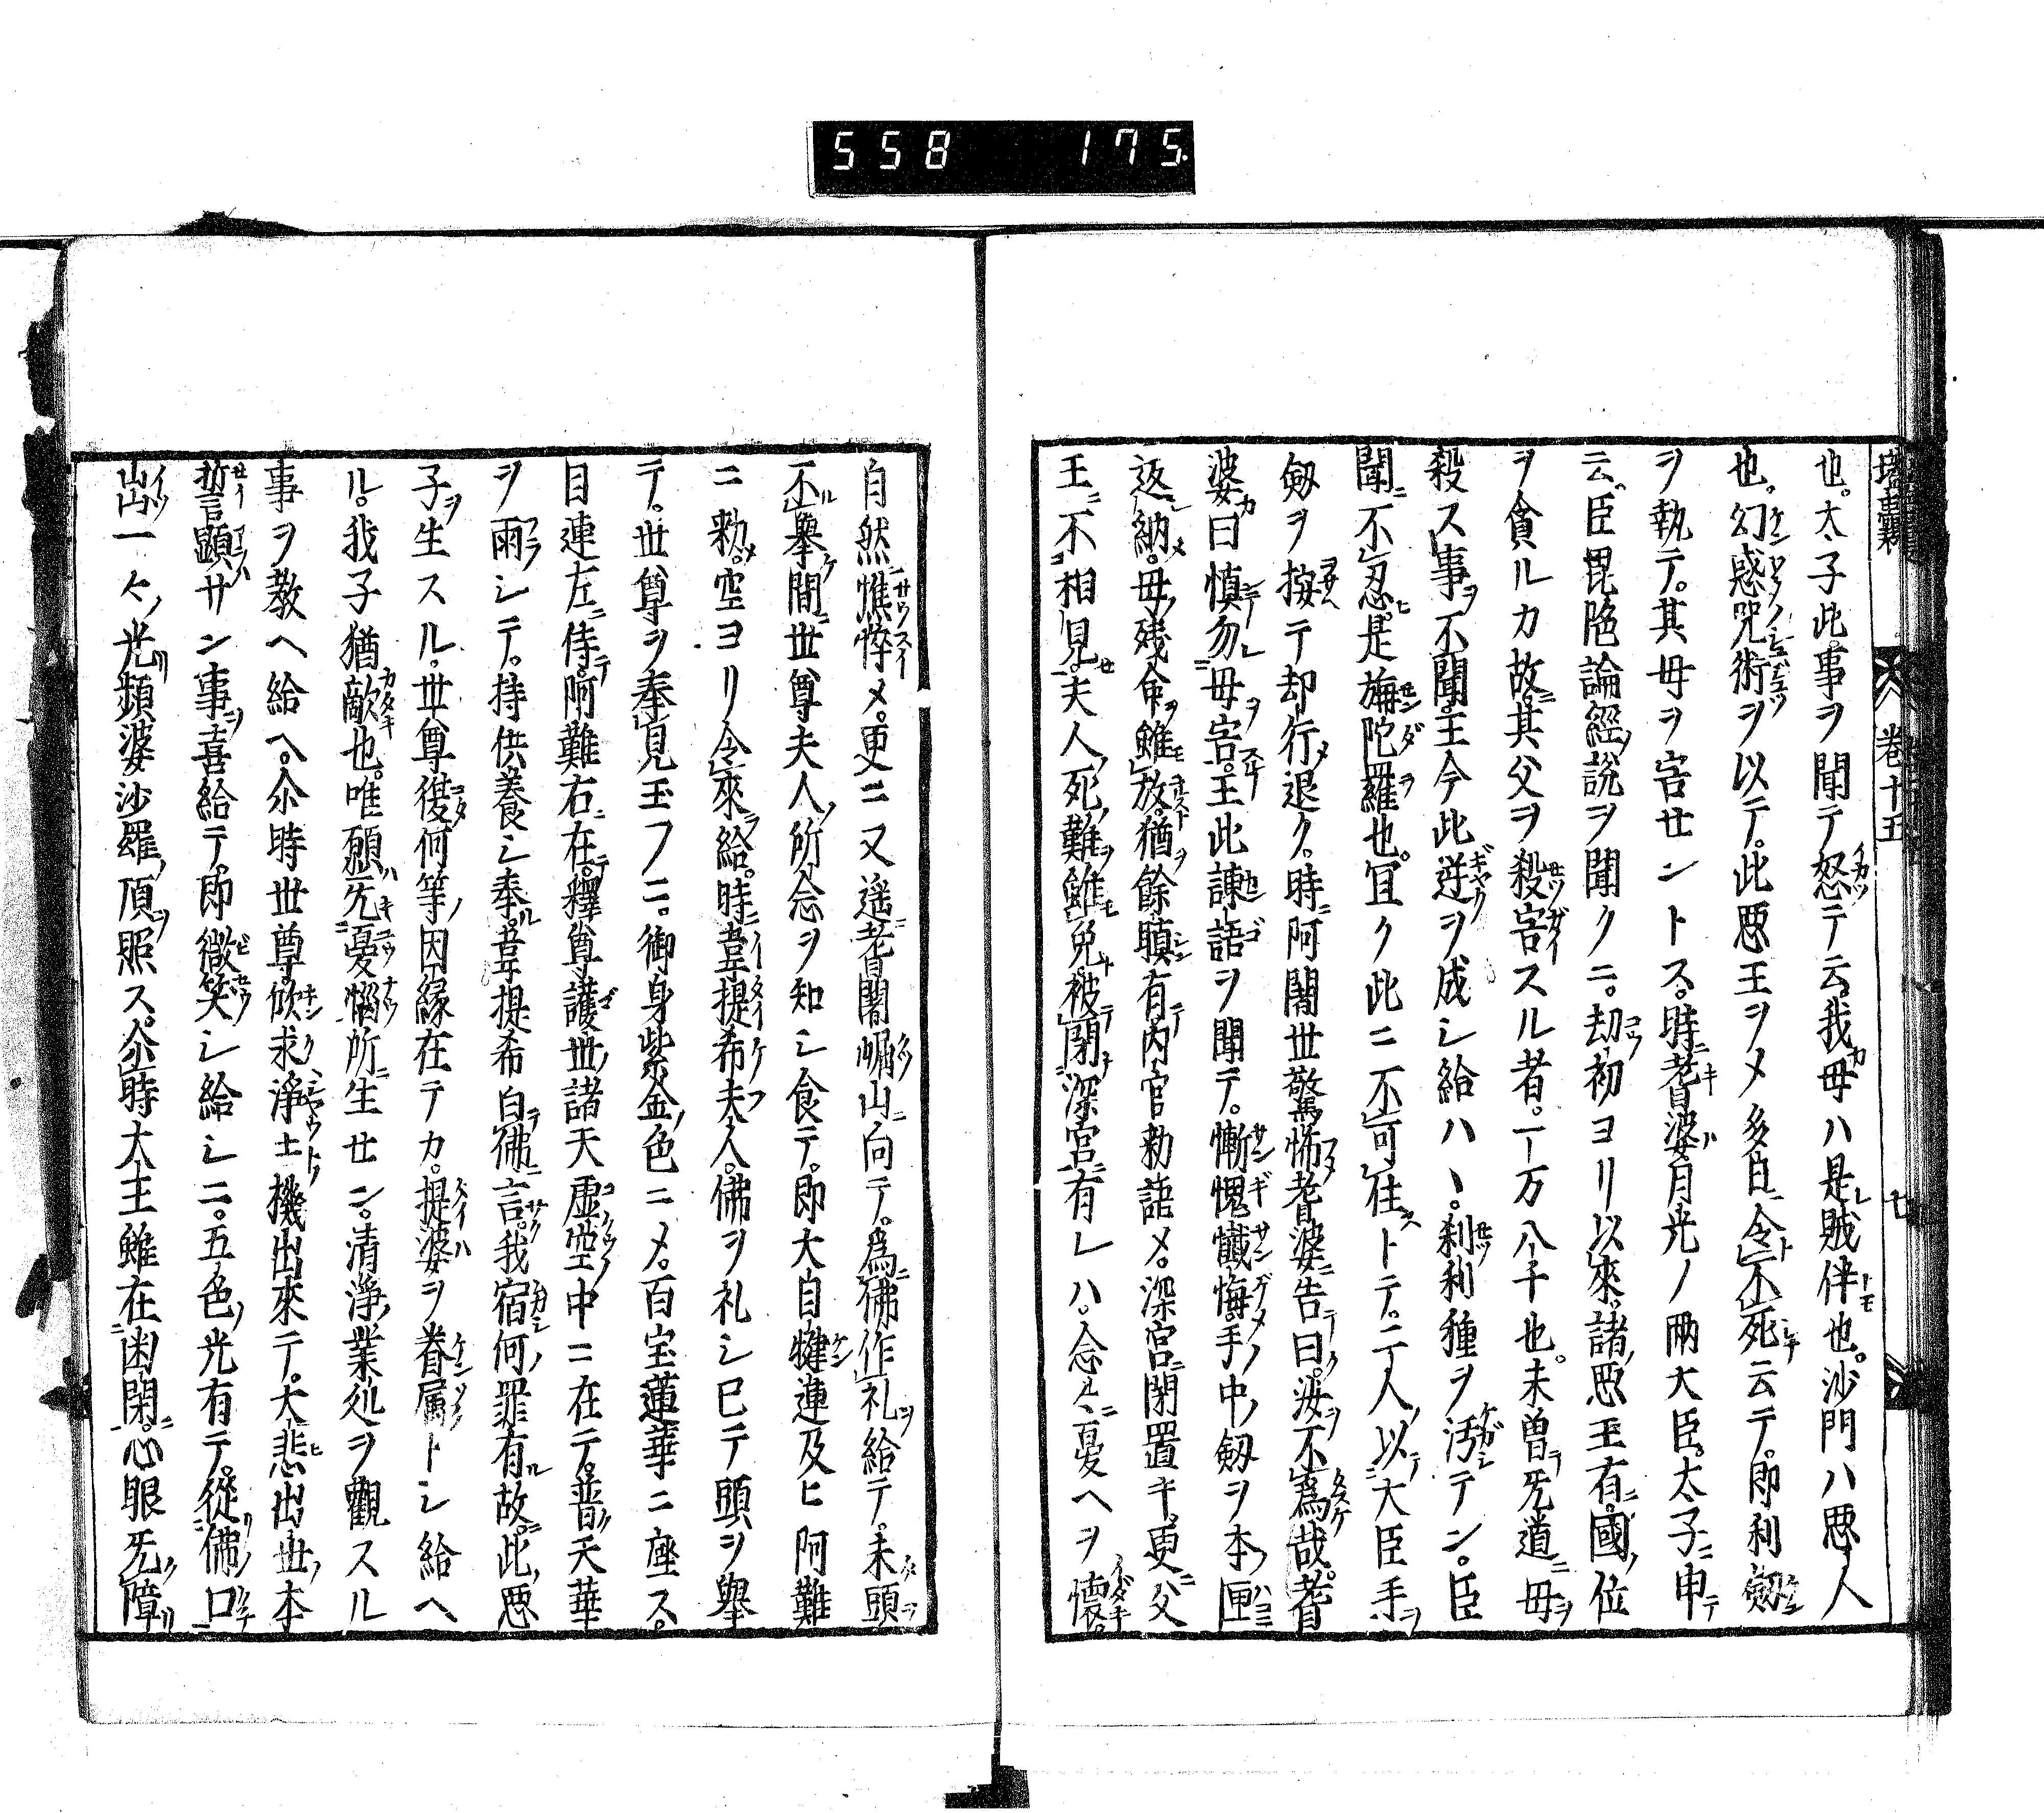 558 175
壒囊 卷十五 廿
也。太子此事ヲ聞テ怒テ云我母ハ是賊伴也。沙門ハ悪人
也。幻惑咒術ヲ以テ。此悪王ヲメ多日令不死云テ。即利劔
ヲ執テ。其母ヲ害セントス。時耆婆月光ノ兩大臣。太子ニ申テ
云。臣毘陁論經ノ説ヲ聞クニ。劫初ヨリ以來。諸悪王有。國ノ位
ヲ貪ルカ故ニ。其父ヲ殺害スル者。一万八千也。未曽无道ニ母ヲ
殺ス事ヲ不聞。王今此逆ヲ成シ給ハヽ。刹利種ヲ汚テン。臣
聞ニ不忍。是旃陀羅也。冝ク此ニ不可住トテ。二人以大臣手ヲ
劔ヲ按テ却行メ退ク。時ニ阿闍世驚怖耆婆ニ告テ曰ク。汝不爲哉。耆
婆カ曰慎勿母ヲ害。王此諌語ヲ聞テ。慚愧懺悔メ手ノ中ノ劔ヲ本ノ匣
返納メ。母ノ残命ヲ雖放。猶餘瞋有テ内官勅語メ。深宮ニ閉置キ。更ニ父
王ニ不相見。夫人ノ死難ヲ雖免。被閉深宮ニ有レハ。念々ニ憂ヘヲ懷。
自然憔悴メ。更ニ又遥ニ耆闍崛山ニ向テ。爲佛作礼ヲ給テ。未頭ヲ
不擧間ニ世尊夫人ノ所念ヲ知シ食テ。即大自犍蓮及ヒ阿難
ニ勅メ。空ヨリ令來給フ。時ニ韋提希夫人。佛ヲ礼シ已テ頭ヲ舉
テ。世尊ヲ奉見玉フニ。御身紫金ノ色ニメ。百宝蓮華ニ座ス。
目連左ニ侍テ。阿難右ニ在テ。釋尊護世ノ諸天虚空ノ中ニ在テ。普ク天華
ヲ雨シテ。持供養シ奉ル。韋提希白佛言。我宿何ノ罪有ル故ニ。此ノ悪
子ヲ生スル。世尊復何等ノ因縁在テカ。提婆ヲ眷属トシ給ヘ
ル。我子猶敵也。唯願ハ无憂惱所ニ生セン。清浄ノ業処ヲ觀スル
事ヲ教ヘ給ヘ。尒時世尊。欣求浄土機出來テ。大悲出世ノ本
誓顯サン事ヲ喜給テ。即微笑シ給シニ。五色ノ光有テ。從佛ノ口
出一々ノ光リ頻婆沙羅ノ頂ヲ照ス。尒時大王雖在困閉ニ。心眼无障リ